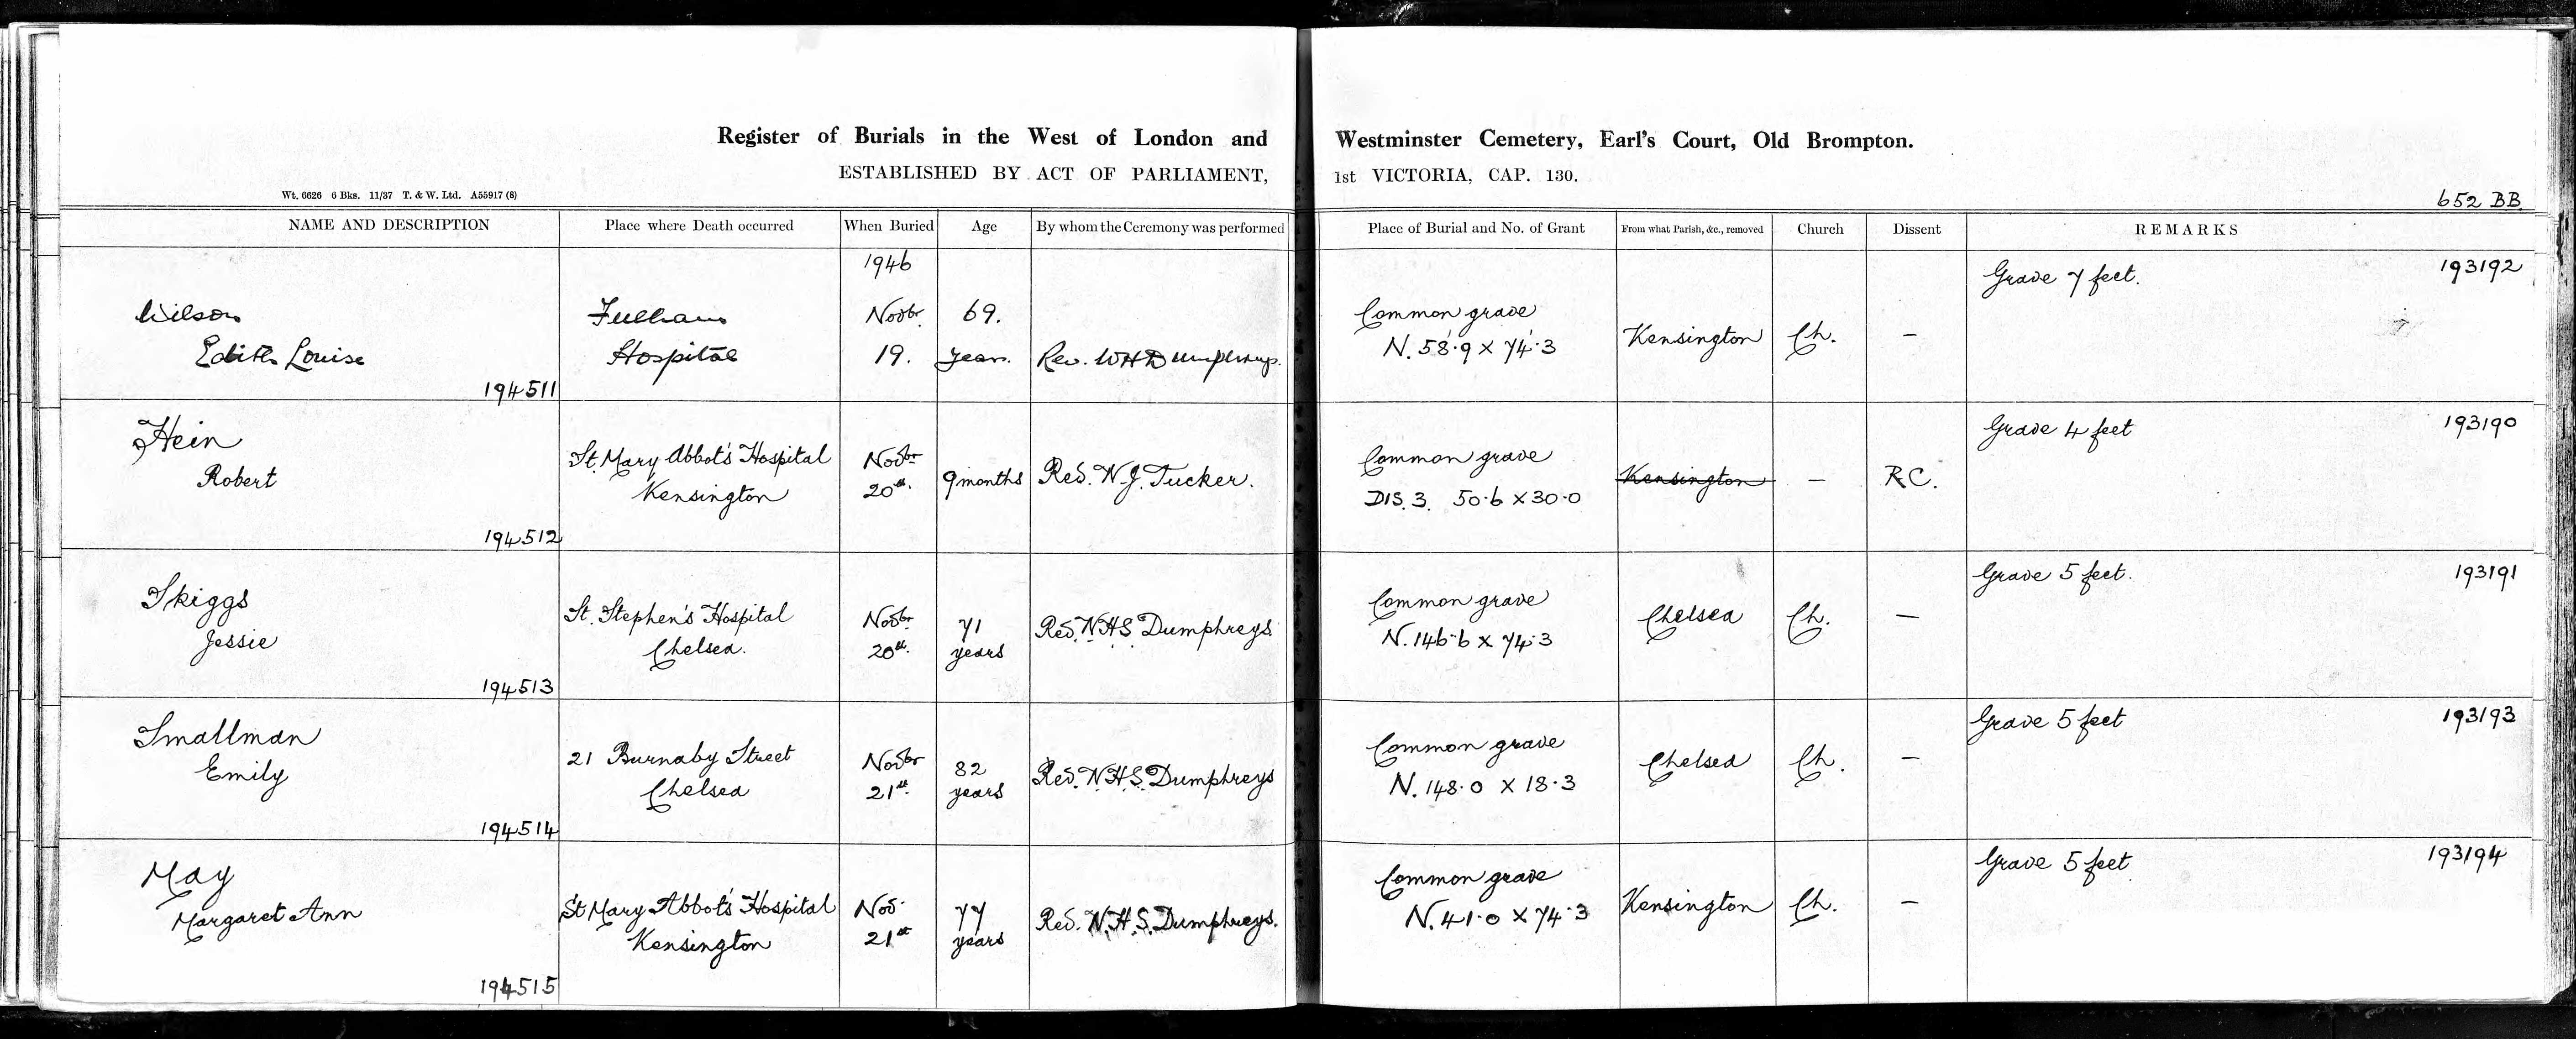 Register of Burials in the West of London and Westminster Cemetery, Earl's Court, Old Brompton.
ESTABLISHED BY ACT OF PARLIAMENT, 1st VICTORIA, CAP. 130.
Wt. 6626 6 Bks. 11/37 T. & W. Ltd. A55917 (8)
652 BB.
NAME AND DESCRIPTION Place where Death occurred When Buried Age By whom the Ceremony was performed Place of Burial and No. of Grant From what Parish, &c., removed Church Dissent REMARKS
1946
Grave 7 feet. 193192
Wilson Fulham Novbr. 69. Common grave
Edith Louise Hospital 19. years. Rev. WHDumphreys. N. 58.9 x 74.3 Kensington Ch. —
194511
Hein Grave 4 feet 193190
Robert St. Mary Abbot's Hospital Novbr 9 months Rev. N. J. Tucker. Common grave Kensington — R.C.
Kensington 20th. DIS. 3. 50.6 x 30.0
194512
Skiggs Grave 5 feet. 193191
Jessie St. Stephen's Hospital Novbr 71 Rev. N.H.S Dumphreys. Common grave Chelsea Ch. —
Chelsea. 20th. years N. 146.6 x 74.3
194513
Smallman Grave 5 feet 193193
Emily 21 Burnaby Street Novbr 82 Rev. N.H.S. Dumphreys Common grave Chelsea Ch. —
Chelsea 21st. years N. 148.0 x 18.3
194514
May Grave 5 feet. 193194
Margaret Ann St Mary Abbot's Hospital Nov. 77 Rev. N.H.S. Dumphreys. Common grave Kensington Ch. —
Kensington 21st years N. 41.0 x 74.3
194515